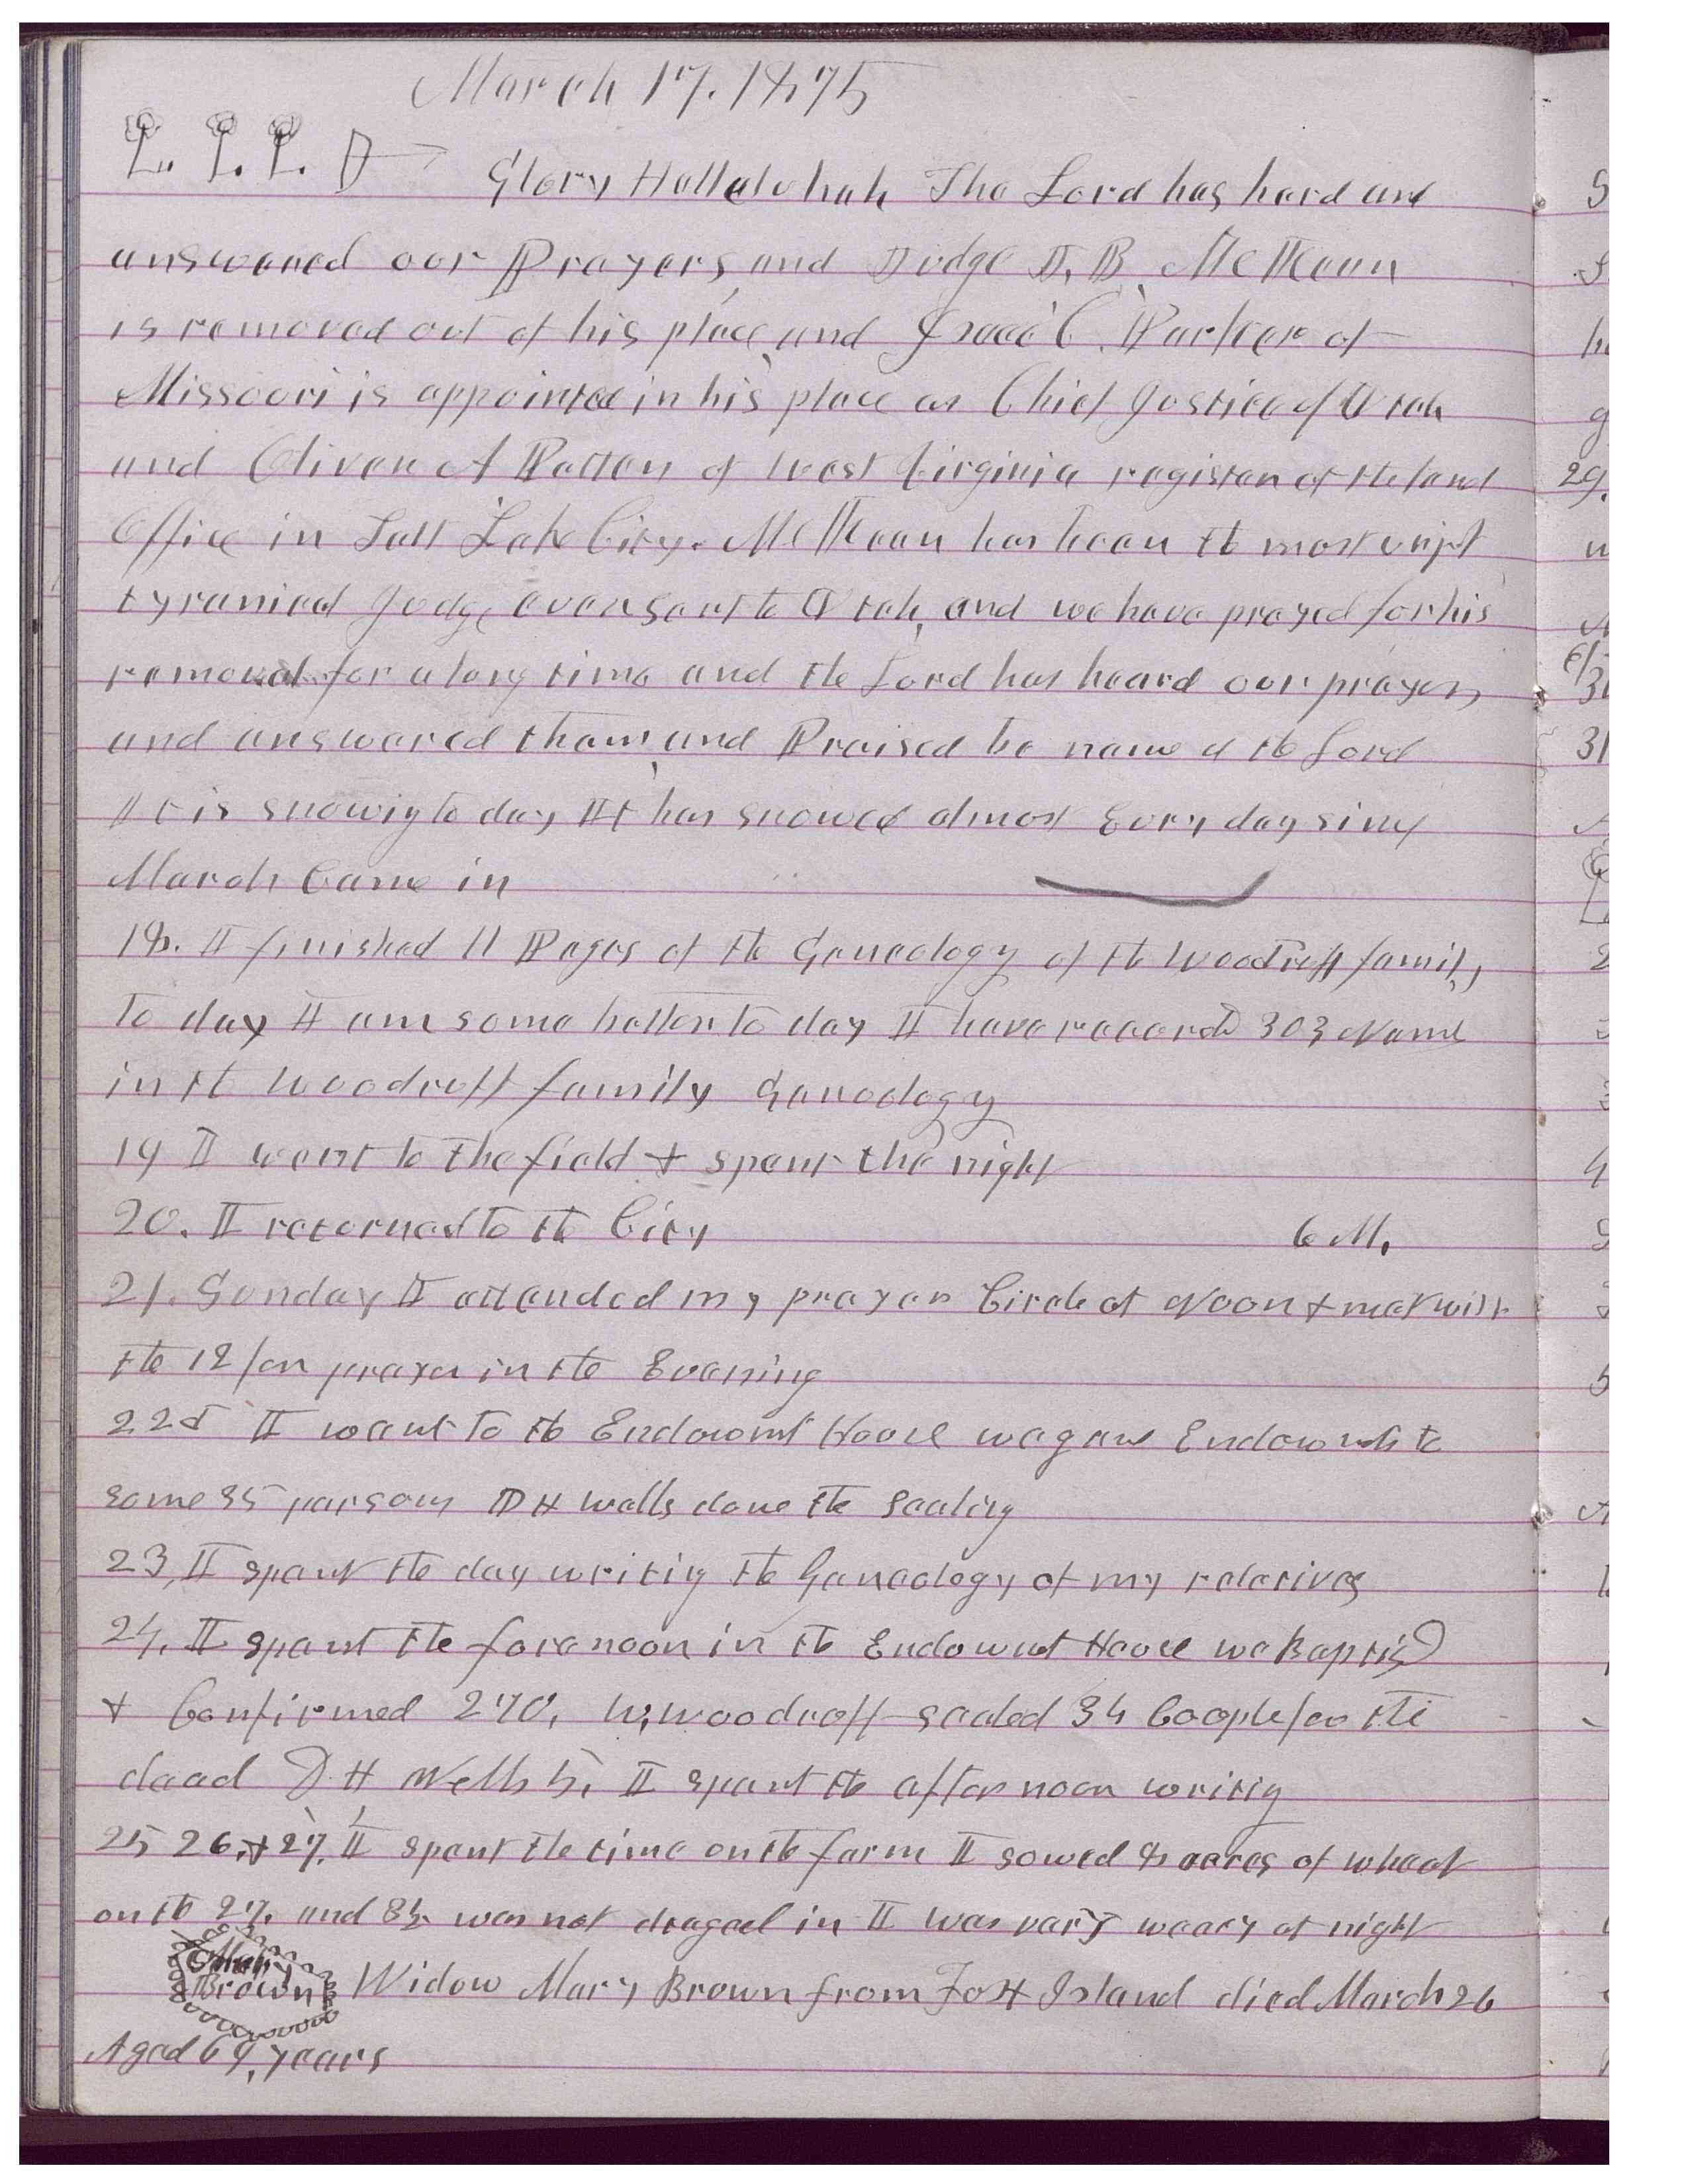 March 17. 1875
Glory Hallaluhah The Lord has hard and
answered our Prayers, and Judge J. B. McKean
is removed out of his place, and Isaac C. Parker of
Missouri is appointed in his place as Chief Justice of Utah
and Oliver A Patton of West Virginia register of the land
Office in Salt Lake City. McKean has been the most unjust
tyranical Judge ever sent to Utah, and we have prayed for his
removal for a long time and the Lord has heard our prayers
and answered them, and Praised be name of the Lord
It is snowing to day It has snowed almost Evry day since
March Came in
18. I finished 11 Pages of the Geneology of the Woodruff family
to day I am some better to day I have recorded 303 Name
in the Woodruff family Geneology
19 I went to the field & spent the night
20. I returned to the City 6 M.
21. Sunday I attended my prayer Circle at Noon & met with
the 12 for prayer in the Evening
22d I went to the Endowmt House we gave Endowmts to
some 35 persons D H Wells done the Sealing
23, I spent the day writing the Geneology of my relatives
24. I spent the forenoon in the Endowmt House we Baptisd
& Confirmed 270, W, Woodruff sealed 34 Couple for the
dead D. H Wells 5, I spent the afternoon writing
25 26, & 27, I spent the time on the farm I sowed 8 acres of wheat
on the 27, and 3½ was not draged in I was vary weary at night
Mary
Brown
Widow Mary Brown from Fox Island died March 26
Aged 69, years